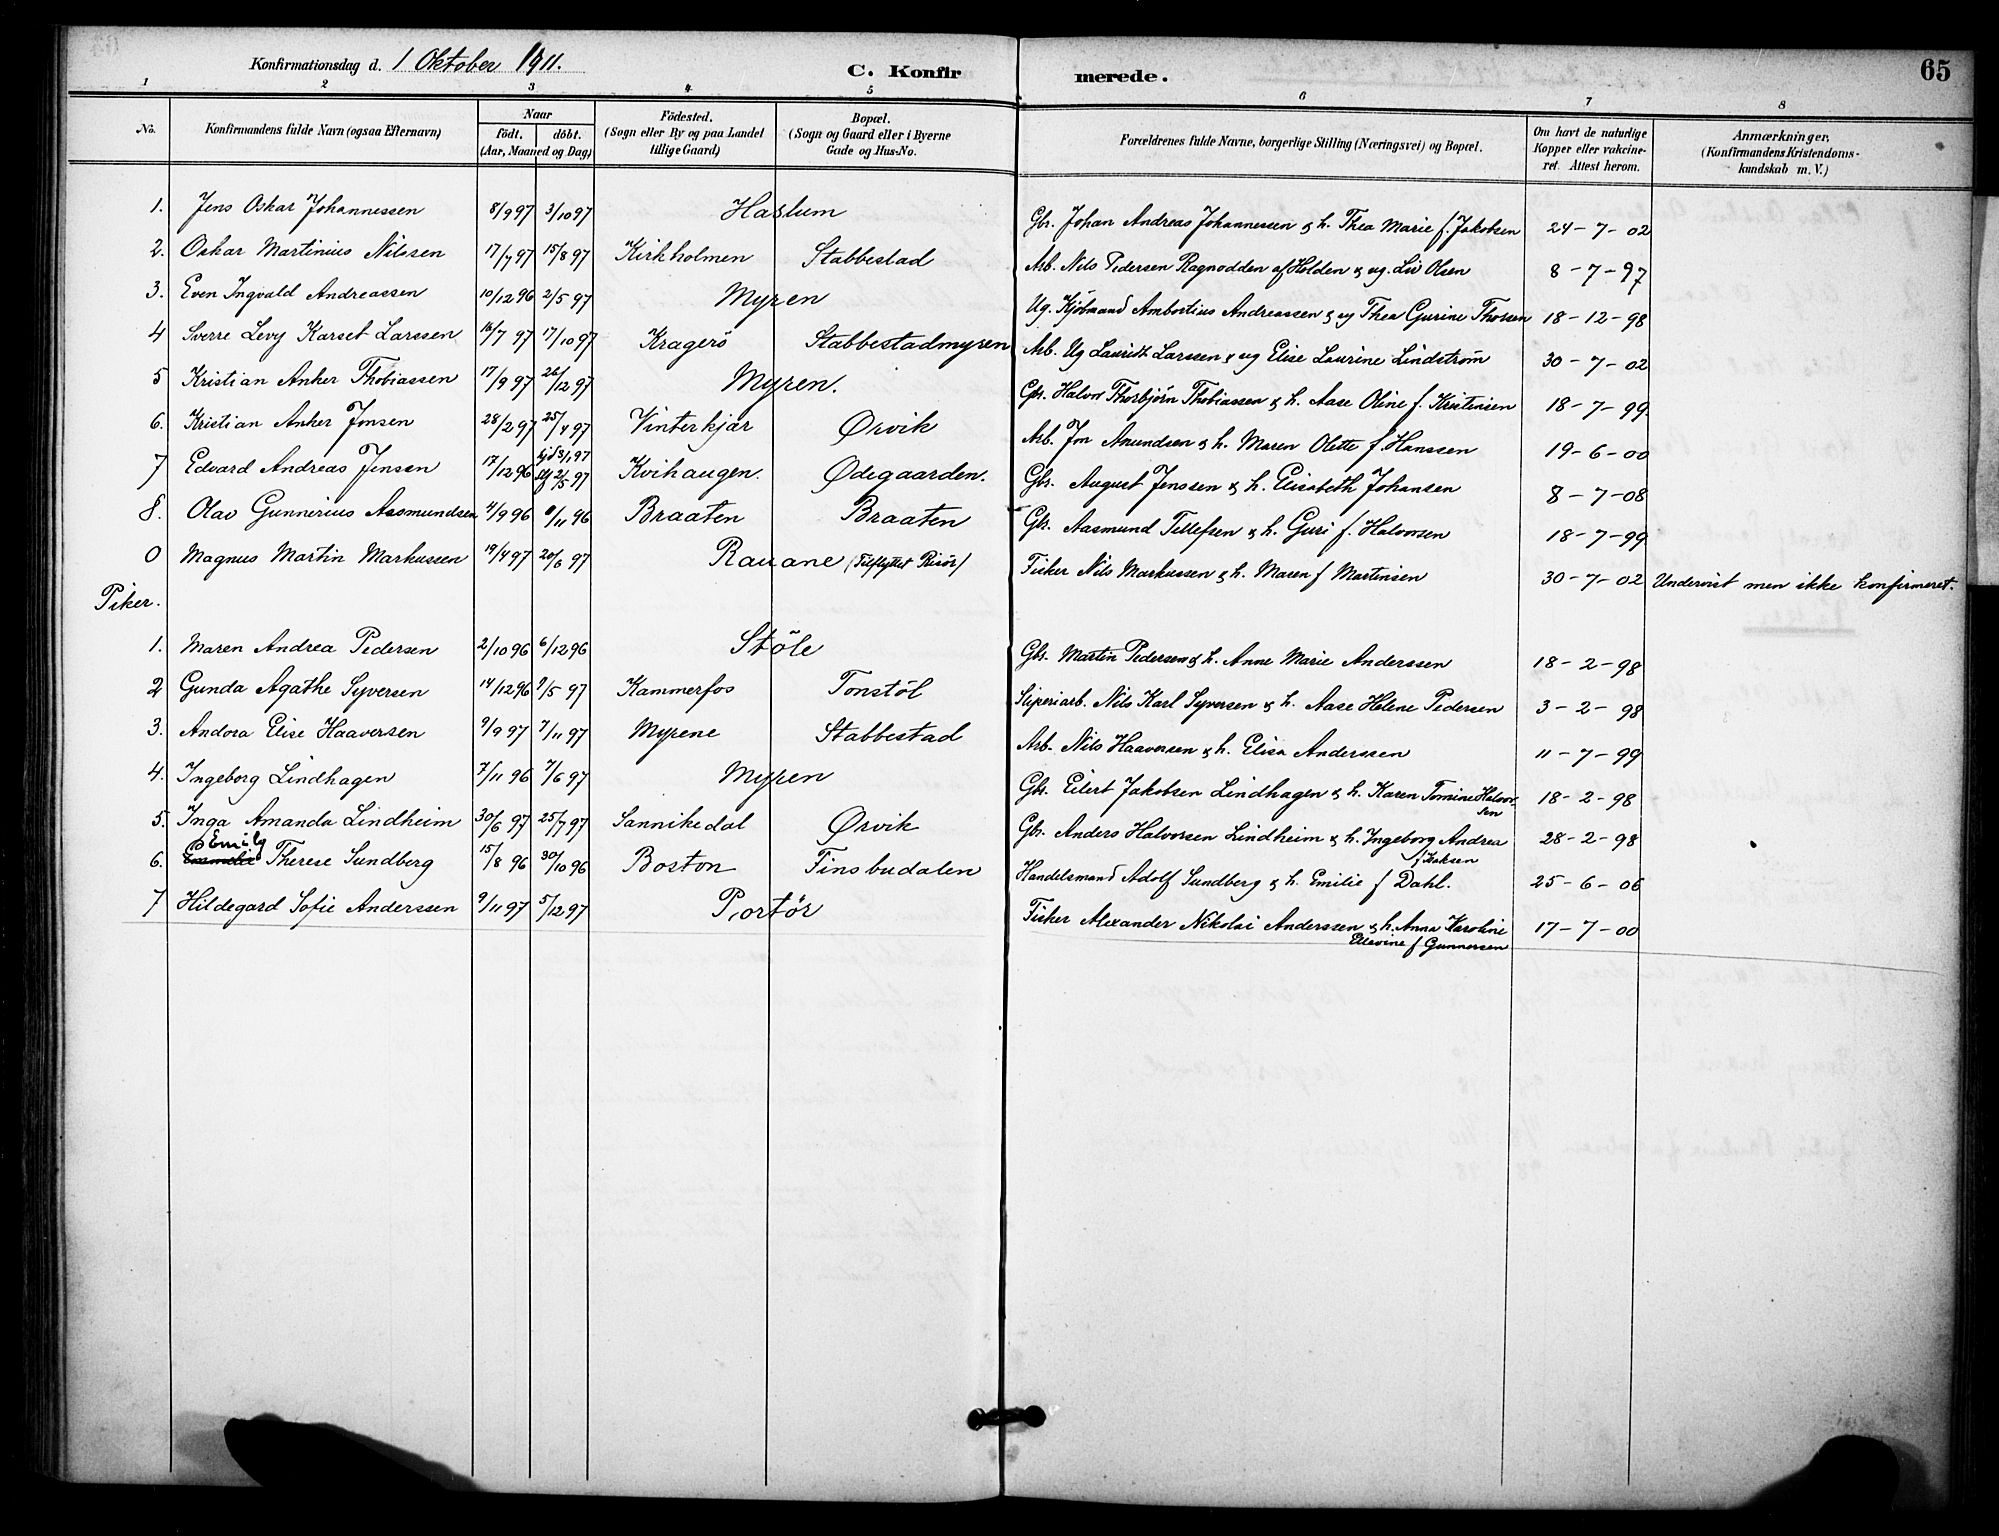 Konfirmationsdag d. 1 Oktober 1911. C. Konfirmerede. 65
1 2 3 4 5 6 7 8
No. Konfirmandens fulde Navn (ogsaa Efternavn) Naar født. døbt. (Aar, Maaned og Dag) Födested. (Sogn eller By og paa Landet tillige Gaard) Bopæl. (Sogn og Gaard eller i Byerne Gade og Hus-No. Forældrenes fulde Navne, borgerlige Stilling (Næringsvei) og Bopæl. Om havt de naturlige Kopper eller vakcineret. Attest herom. Anmærkninger, (Konfirmandens Kristendomskundskab m. V.)
1. Jens Oskar Johannessen 8/9 97 3/10 97 Haslum Gbr. Johan Andreas Johannessen & h. Thea Marie f. Jakobsen 24-7-02
2. Oskar Martinius Nilssen 17/7 97 15/8 97 Kirkholmen Stabbestad Arb. Nils Pedersen Ragnodden af Holden & ug. Liv Olsen 8-7-97
3. Even Ingvald Andreassen 10/12 96 2/5 97 Myren Ug. Kjöbmand Ambortius Andreassen & ug Thea Gurine Thorsen 18-12-98
4 Sverre Levy Karset Larssen 16/7 97 17/10 97 Kragerö Stabbestadmyren Arb. Ug Lauritz Larssen & ug Elise Laurine Lindström 30-7-02
5 Kristian Anker Thobiassen 17/9 97 26/12 97 Myren. Gbr. Halvor Thorbjörn Thobiassen & h. Aase Oline f. Kristensen 18-7-99
6. Kristian Anker Jonsen 28/2 97 25/4 97 Vinterkjär Ørvik Arb. Jon Anundsen & h. Maren Olette f. Hanssen 19-6-00
7 Edvard Andreas Jensen 17/12 96 hjd 3/1 97 stf 2/5 97 Kvihaugen. Ødegaarden. Gbr. August Jenssen & h. Elisabeth Johansen 8-7-08
8. Olav Gunnerius Aasmundsen 4/9 96 8/11 96 Braaten Braaten Gbr. Aasmund Tellefsen & h. Guri f. Halvorsen 18-7-99
0 Magnus Martin Markussen 19/4 97 20/6 97 Rauane (Tilflyttet Risör) Fisker Nils Markussen & h. Maren f Martinsen 30-7-02 Undervist men ikke konfirmeret.
Piker.
1. Maren Andrea Pedersen 2/10 96 6/12 96 Stöle Gbr. Martin Pedersen & h. Anne Marie Anderssen 18-2-98
2 Gunda Agathe Syversen 14/12 96 9/5 97 Kammerfos Tonstöl Sliperiarb. Nils Karl Syversen & h. Aase Helene Pedersen 3-2-98
3. Andora Elise Haaversen 9/9 97 7/11 97 Myrene Stabbestad Arb. Nils Haaversen & h. Elisa Anderssen 11-7-99
4. Ingeborg Lindhagen 7/11 96 7/6 97 Myren Gbr. Eilert Jakobsen Lindhagen & h. Karen Tomine Halvorsen 18-2-98
5. Inga Amanda Lindheim 30/6 97 25/7 97 Sannikedal Ørvik Gbr. Anders Halvorsen Lindheim & h. Ingeborg Andrea f Isaksen 28-2-98
Emily
6. Emmelie Therese Sundberg 15/8 96 30/10 96 Boston Finsbudalen Handelsmand Adolf Sundberg & h. Emilie f Dahl. 25-6-06
7 Hildegard Sofie Anderssen 9/11 97 5/12 97 Portör Fisker Alexander Nikolai Anderssen & h. Anna Karoline Ellevine f Gunnersen 17-7-00